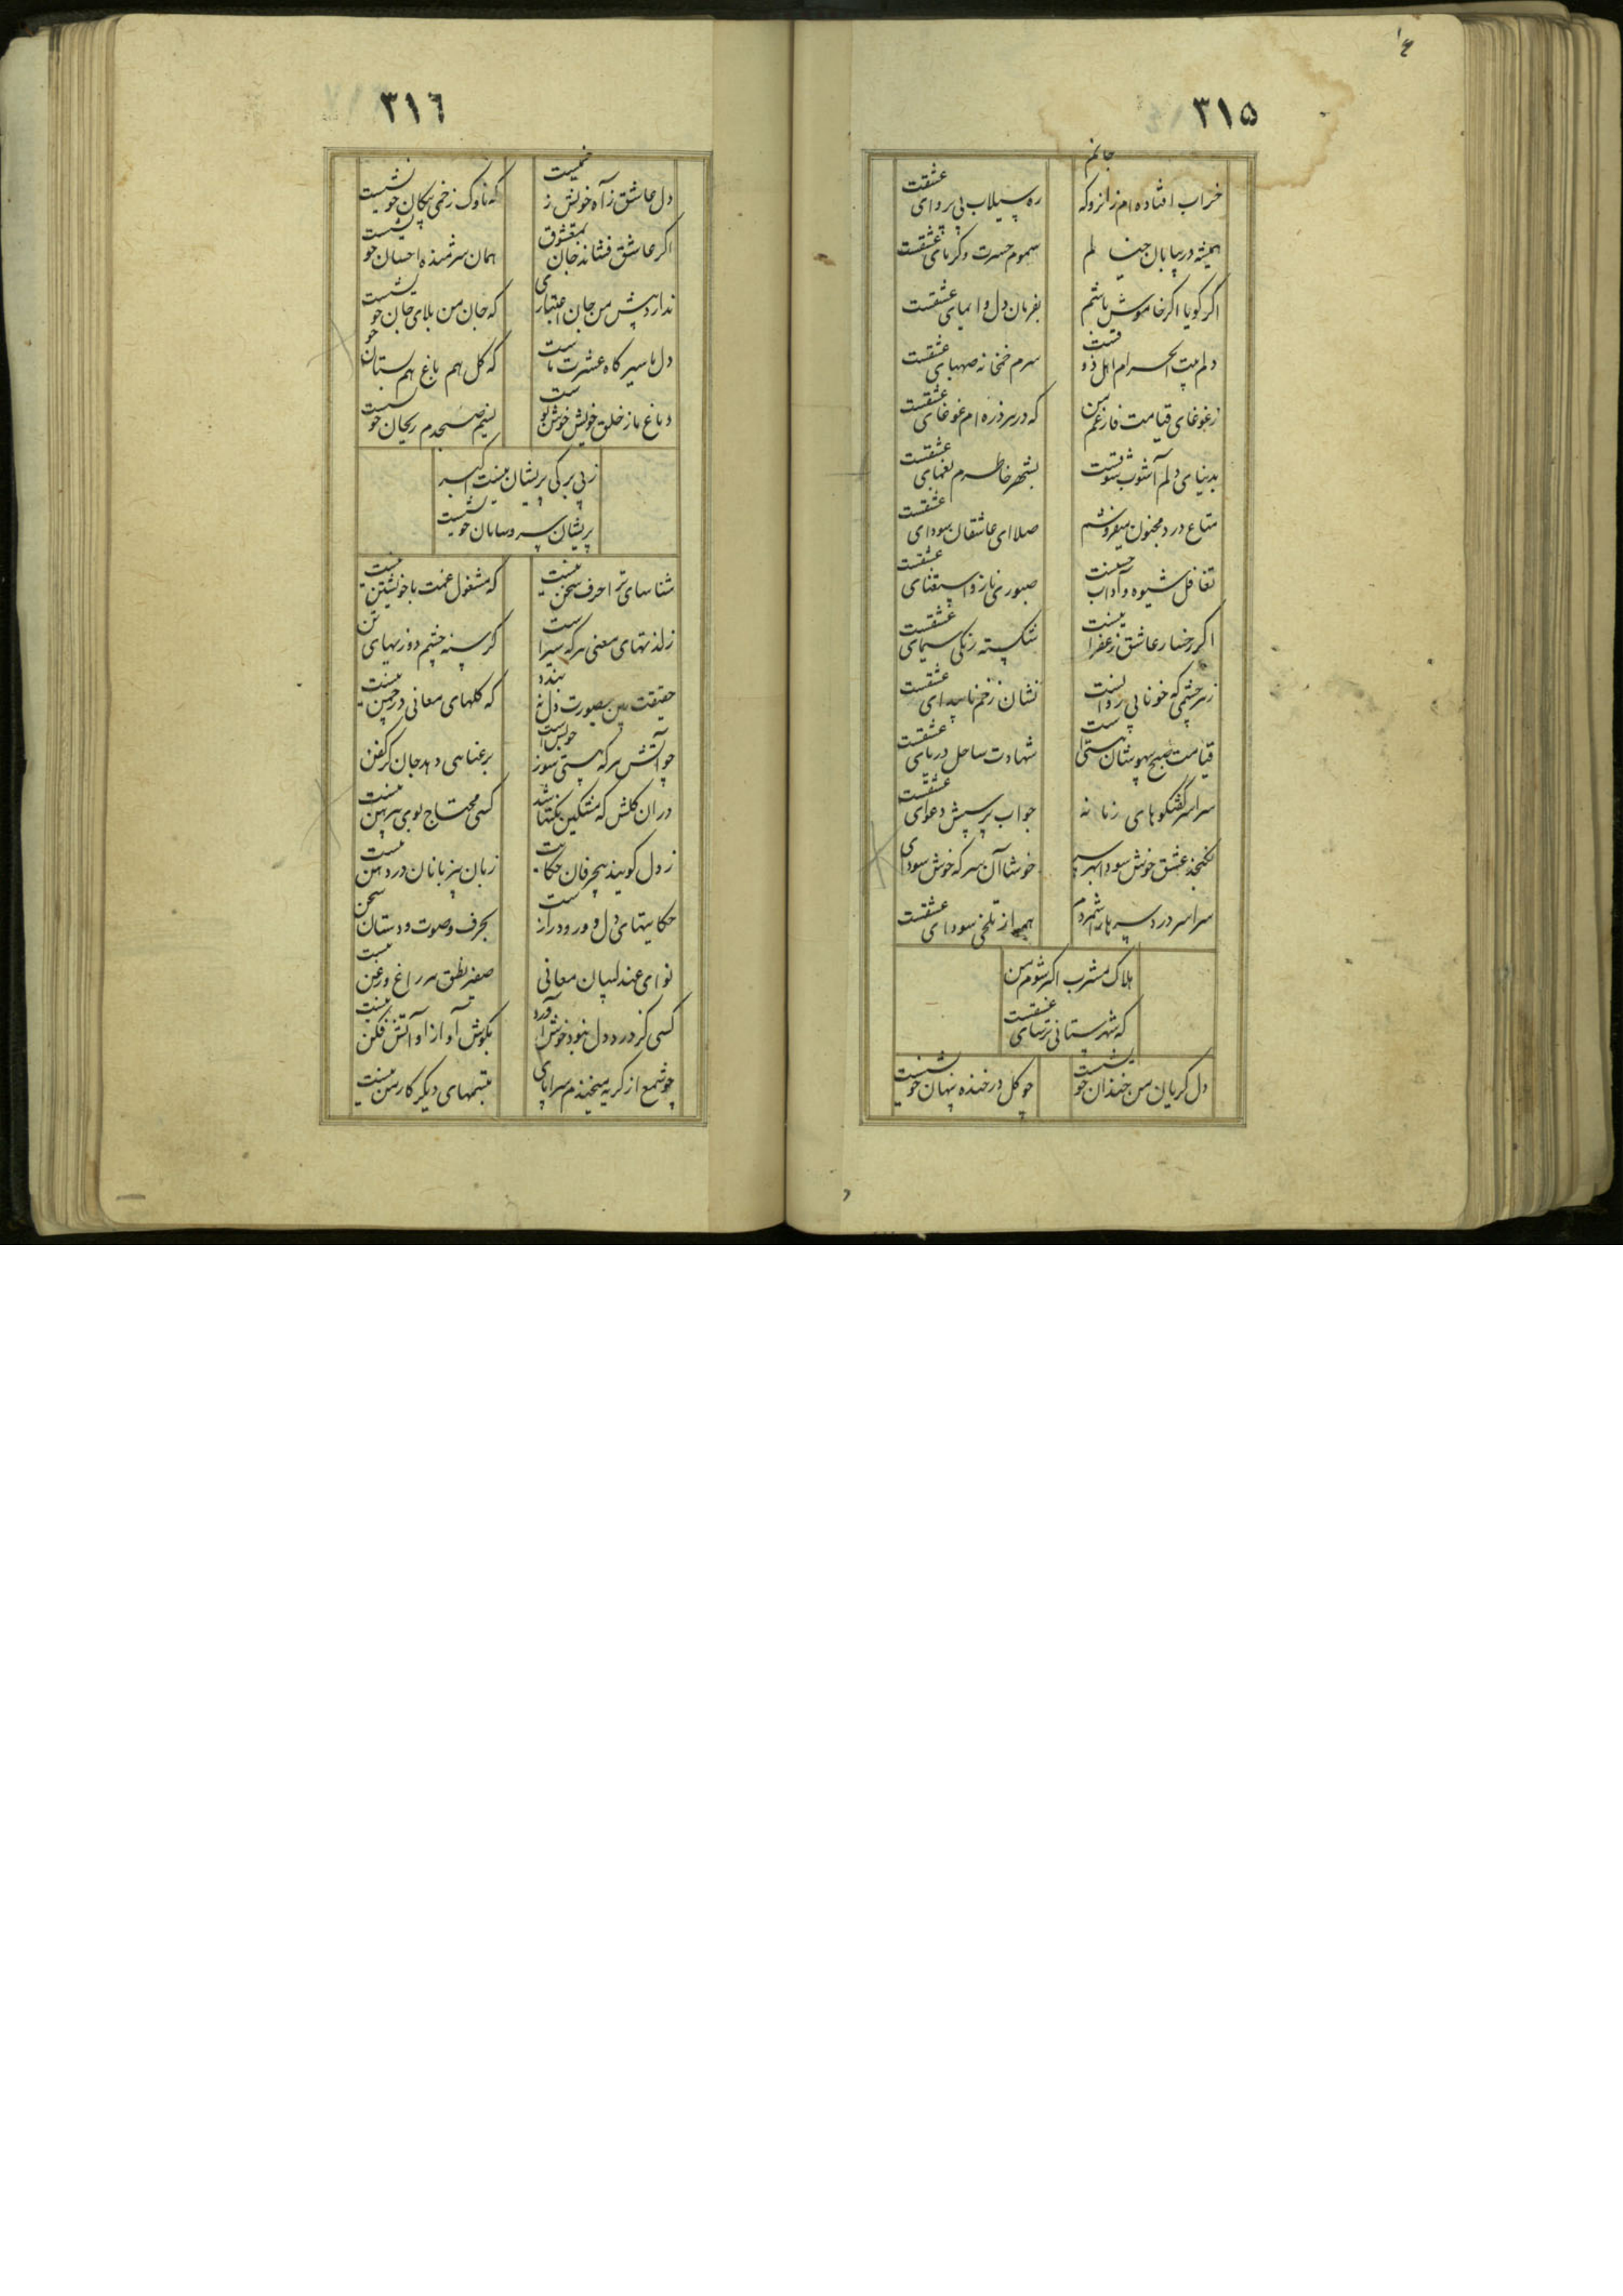 ۳۱۵
خراب افتاده ام زانرو که جانم
ره سیلاب بی پروای عشقست
همیشه در بیابان خیالم
سموم حسرت و کرمای عشقست
اکر کویا اکر خاموش باشم
بفرمان دل و ایمای عشقست
دلم بیت الحرام اهل ذوقست
سرم خمخانه صهبای عشقست
زغوغای قیامت فارغم من
که در هر ذره ام غوغای عشقست
بدنیای دلم آشوب شوقست
بشهر خاطرم یغمای عشقست
متاع درد مجنون میفروشم
صلا ای عاشقان سودای عشقست
تغافل شیوه و آداب حسنست
صبوری ناز و استغنای عشقست
اکر رخسار عاشق زعفرا نیست
شکسته رنکی سیمای عشقست
زهر چشمی که خونابی روانست
نشان زخم ناپیدای عشقست
قیامت صبح بیهوشان هستی است
شهادت ساحل دریای عشقست
سراسر گفتکوهای زمانه
جواب پرسش دعوای عشقست
نکنجد عشق خوش سودا بهر سر
خوشا آن سر که خوش سودای
سراسر درد سرها را شمردم
همه از تلخی سودای عشقست
هلاک مشرب اکر شوم من
که شهرستانی ترسای عشقست
دل کریان من خندان خویشست
چو کل در خنده پنهان خویشست
۳۱٦
دل عاشق ز آه خویش زخمیست
که ناوک زخمی پیکان خویشست
اکر عاشق فشاند جان بمعشوق
همان شرمنده احسان خویشست
ندارد پیش من جان اعتباری
که جان من بلای جان خویشست
دل ما سیر کاه عشرت ماست
که کل هم باغ هم بستان خو
دماغ ما ز خلق خویش خوش بوست
نسیم صبحدم ریحان خویست
ز بی برکی پریشان نیست اسیر
پریشان سر و سامان خویشست
شناسای ترا حرف سخن نیست
که مشغول غمت با خویشتن نیست
ز لذتهای معنی هر که سیراست
کرسنه چشم دوزیهای تن
حقیقت بین بصورت دل نبندد
که کلهای معانی در چمن نیست
چو آتش هر که هستی سوز خویش است
برعنایی دهد جان کر کفن
دران کلشن که مشکین نکتها شد
کسی محتاج بوی پیرهن نیست
ز دل کویند بیحرفان حکایت
زبان بیزبانان در دهن نیست
حکایتهای دل دور و دراز است
بحرف و صوت و دستان سخن
نوای عندلیبان معانی
صفیر نطق هر زاغ و زغن نیست
کسی کز درد دل نبود خوش آورد
بکوش آواز او آتش فکن نیست
چو شمع از کریه میخندم سراپای
تبسمهای دیکر کار من نیست